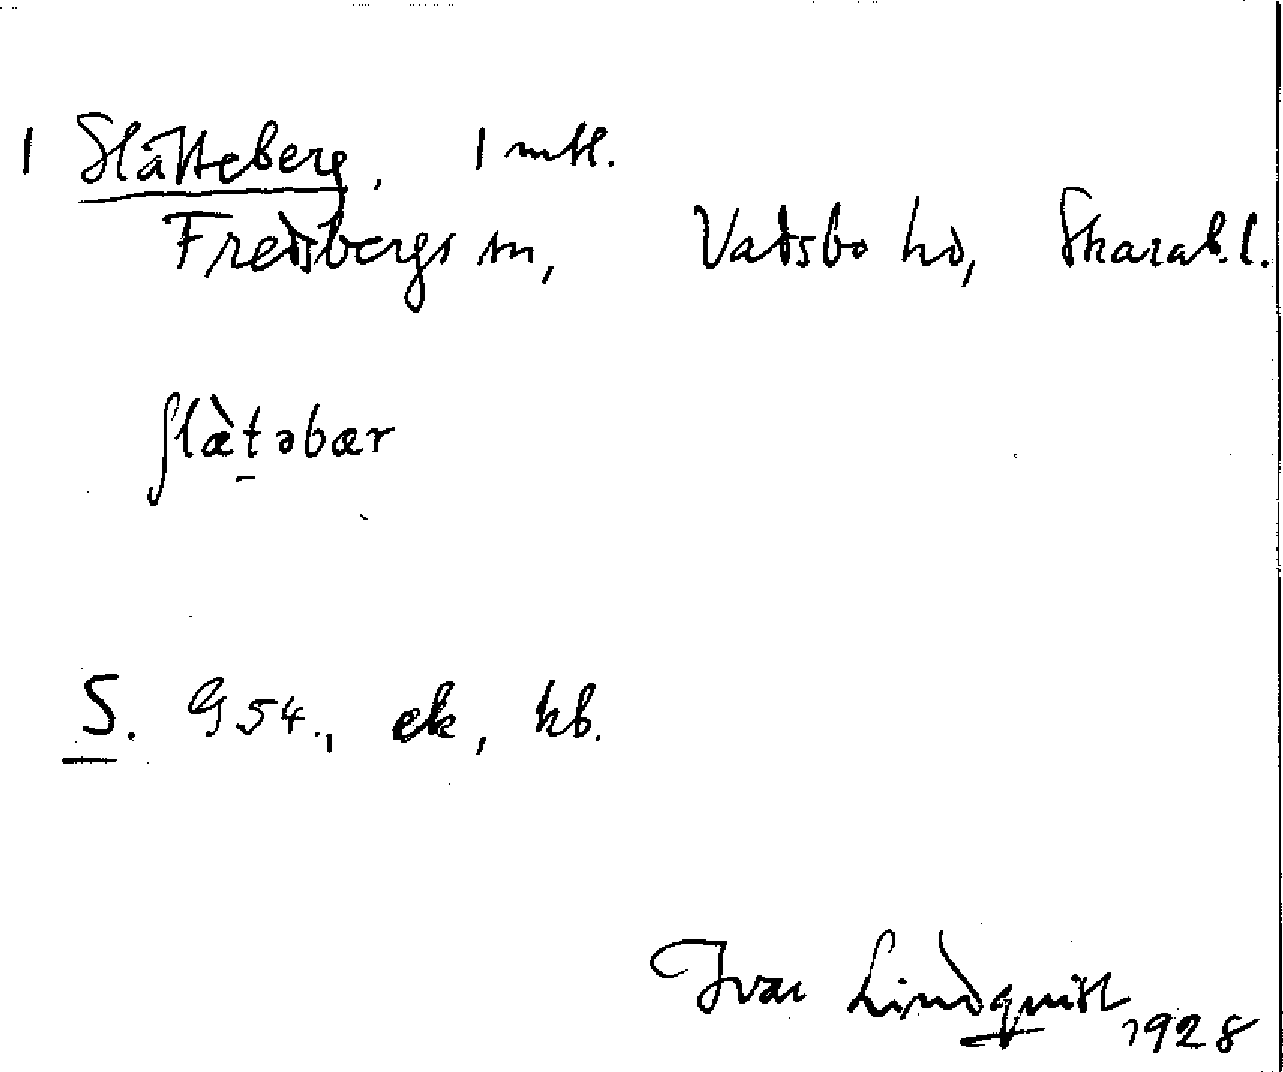 1 Slätteberg, 1 mtl.
Fredsbergs sn, Vadsbo hd, Skarab. l.
ſlæ̀təbær
S. G54., ek, kb.
Ivar Lindquist 1928